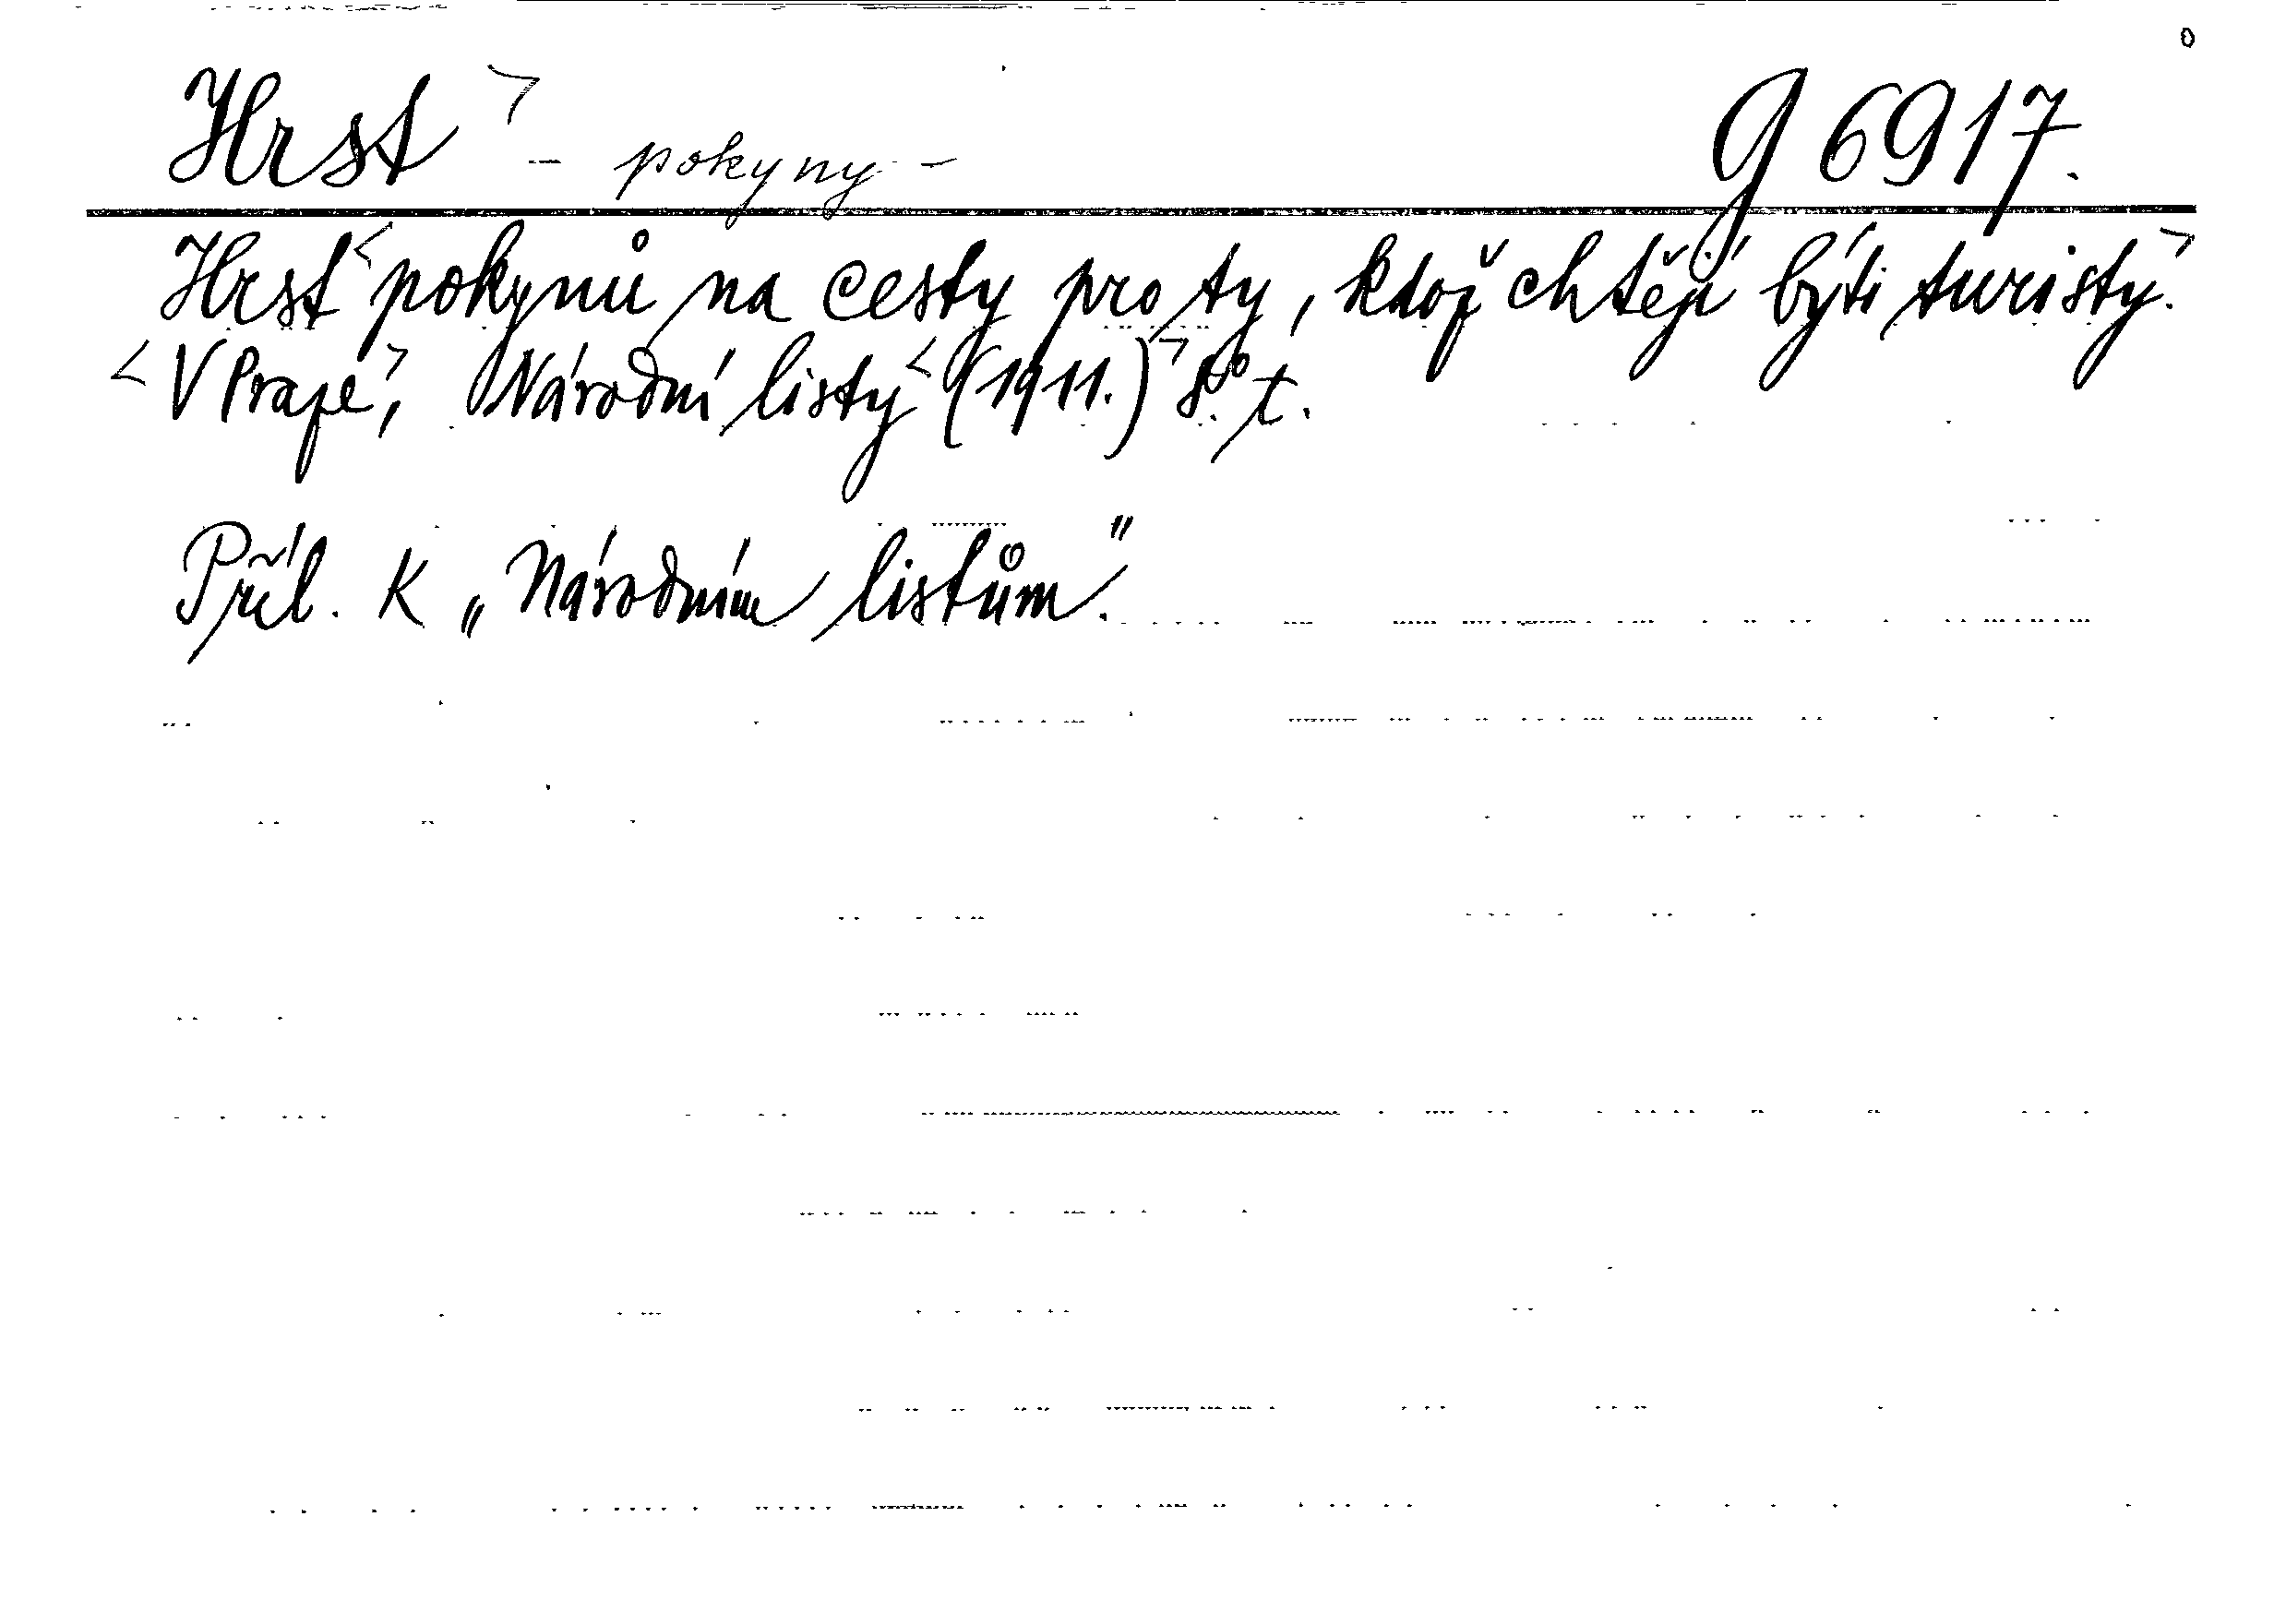 Hrst - pokyny - g 6917.
Hrsť pokynů na cesty pro ty, kdož chtějí býti turisty.
V Praze, Národní listy (1911.) 8° t.
Příl. k „Národním listům."